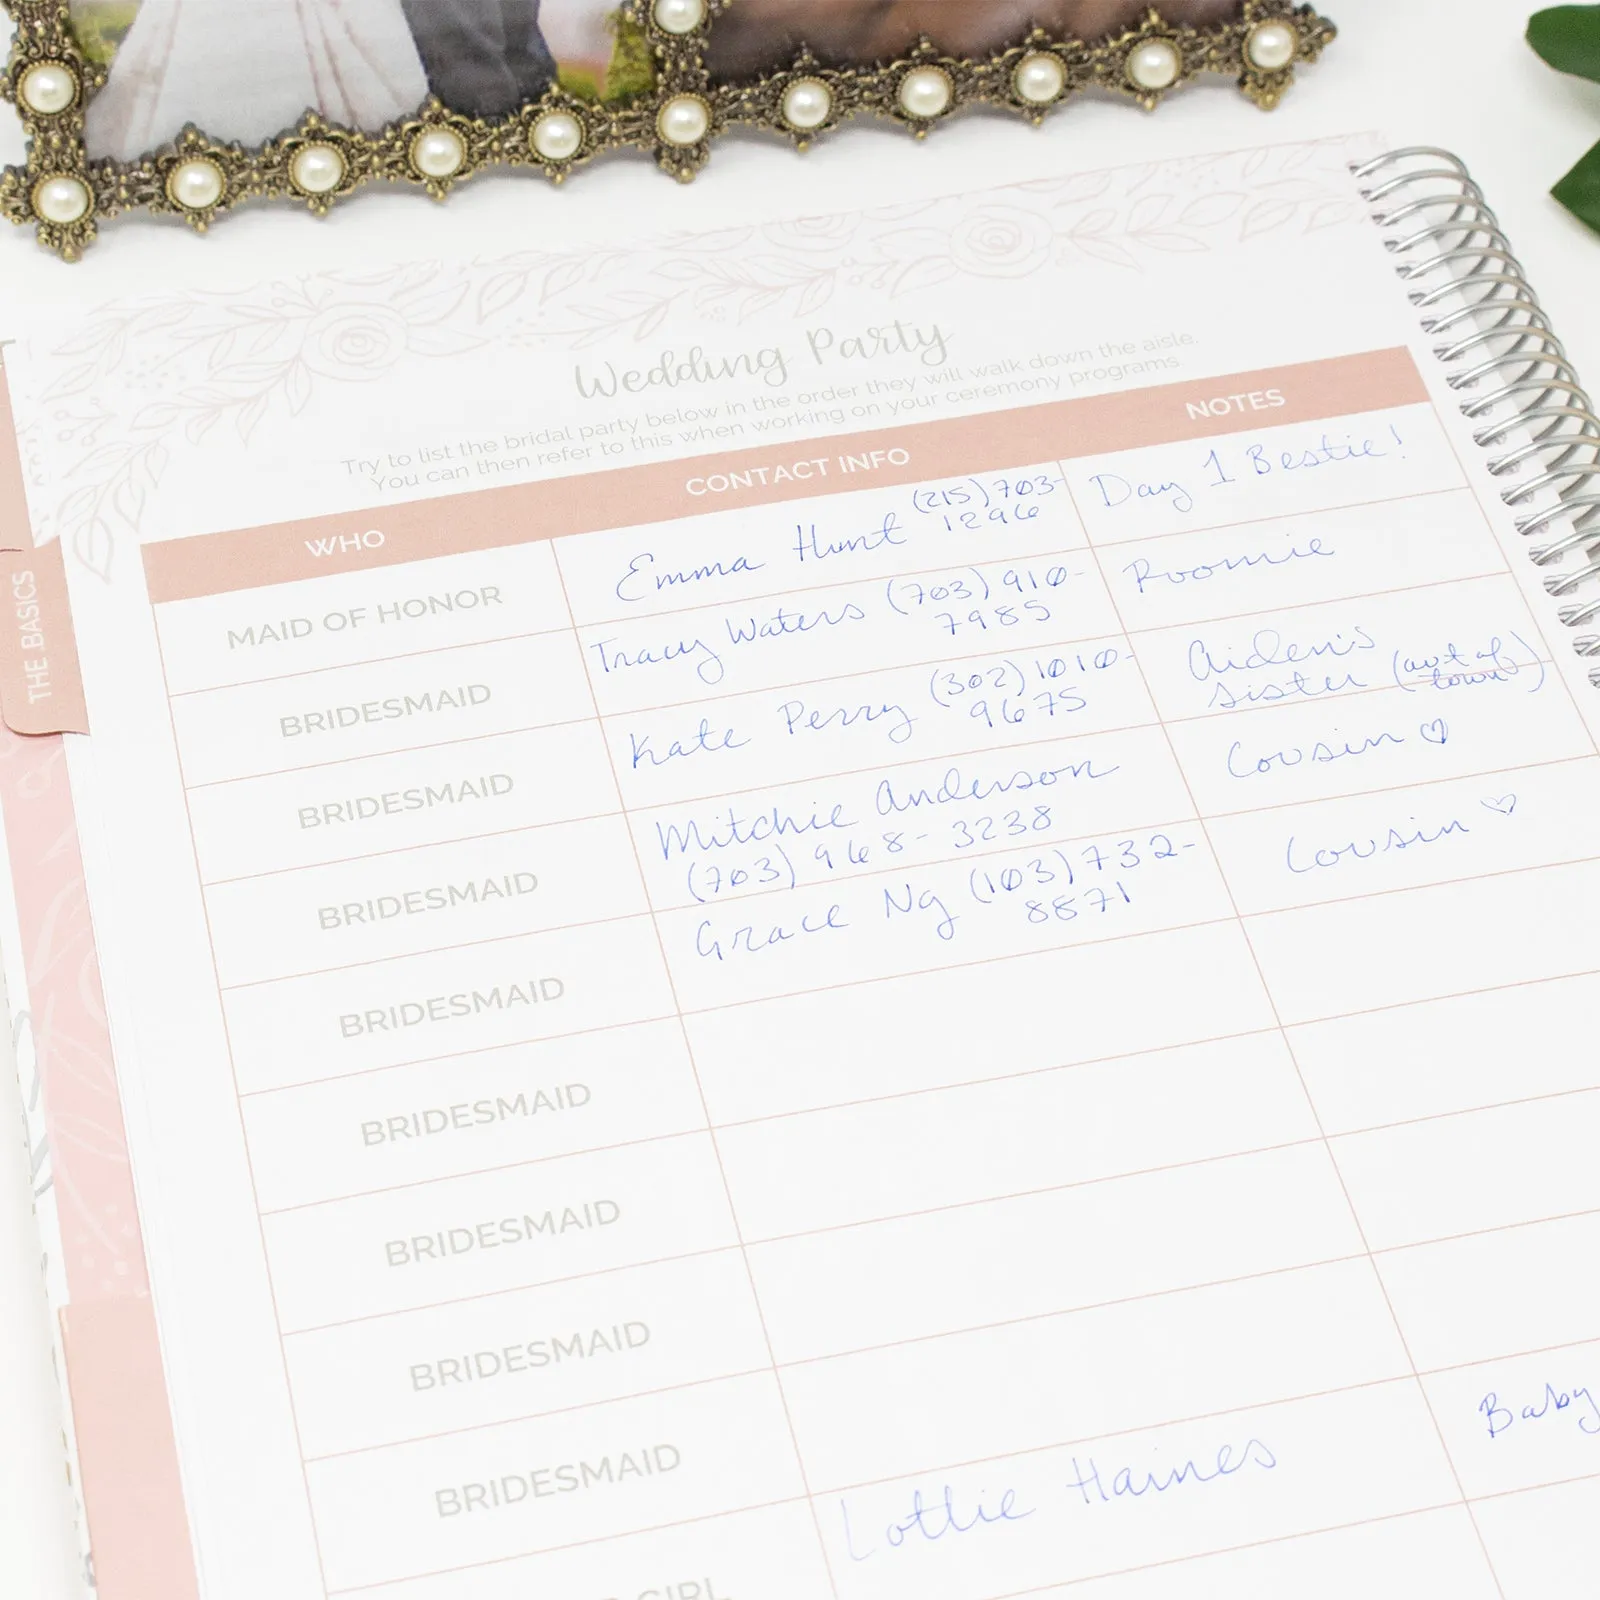 Wedding Party
Try to list the bridal party below in the order they will walk down the aisle.
You can then refer to this when working on your ceremony programs.
WHO CONTACT INFO NOTES
MAID OF HONOR Emma Hunt (215) 703-
1296 Day 1 Bestie!
BRIDESMAID Tracy Waters (703) 910-
7985 Roomie
BRIDESMAID Kate Perry (302) 1010-
9675 Aiden's
sister (out of
town)
BRIDESMAID Mitchie Anderson
(703) 968-3238 Cousin ♡
BRIDESMAID Grace Ng (103) 732-
8871 Cousin ♡
BRIDESMAID
BRIDESMAID
BRIDESMAID
BRIDESMAID
Lottie Haines Baby
GIRL
THE BASICS